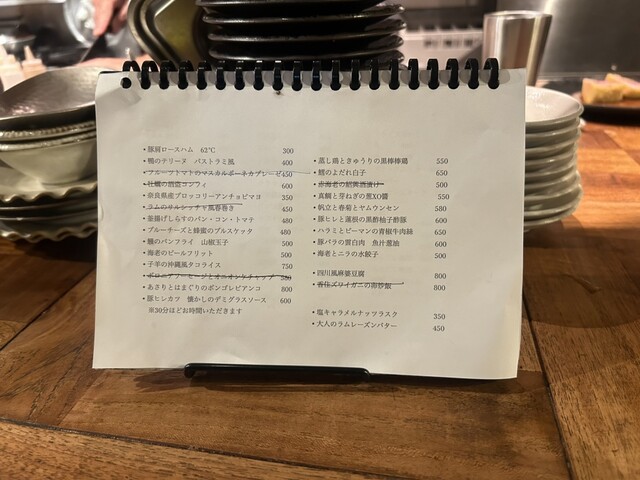 ・豚肩ロースハム 62℃ 300
・鴨のテリーヌ パストラミ風 400
・フルーツトマトのマスカルポーネカプレーゼ 450
・牡蠣の酒盗コンフィ 600
・奈良県産ブロッコリーアンチョビマヨ 350
・ラムのサルシッチャ風春巻き 450
・釜揚げしらすのパン・コン・トマテ 480
・ブルーチーズと蜂蜜のブルスケッタ 480
・鰺のパンフライ 山椒玉子 500
・海老のビールフリット 500
・子羊の沖縄風タコライス 750
・ボロニアソーセージとオニオンケチャップ 580
・あさりとはまぐりのボンゴレビアンコ 800
・豚ヒレカツ 懐かしのデミグラスソース 600
※30分ほどお時間いただきます
・蒸し鶏ときゅうりの黒棒棒鶏 550
・鱈のよだれ白子 650
・赤海老の紹興酒漬け 500
・真鯛と芽ねぎの葱XO醬 550
・帆立と春菊とヤムウンセン 580
・豚ヒレと蓮根の黒酢柚子酢豚 600
・ハラミとピーマンの青椒牛肉絲 650
・豚バラの雲白肉 魚汁葱油 600
・海老とニラの水餃子 500
・四川風麻婆豆腐 800
・香住ズワイガニの御炒飯 800
・塩キャラメルナッツラスク 350
・大人のラムレーズンバター 450